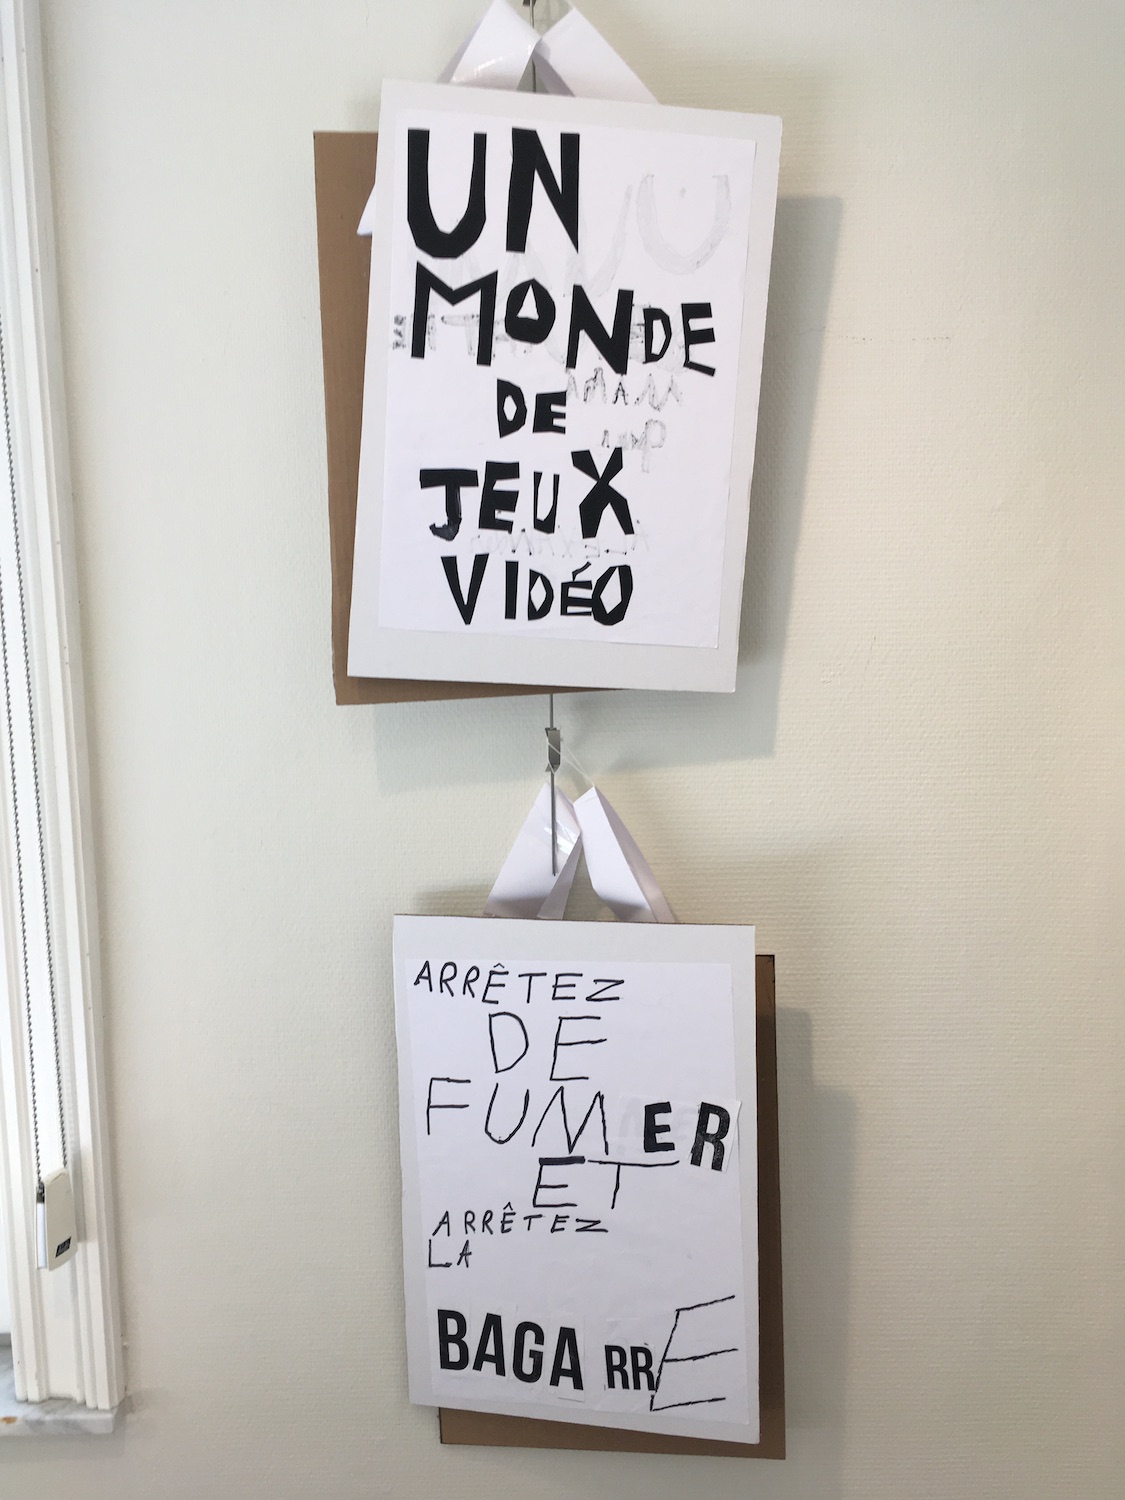 UN
MONDE
DE
JEUX
VIDÉO
ARRÊTEZ
DE
FUMER
ET
ARRÊTEZ
LA
BAGARRE